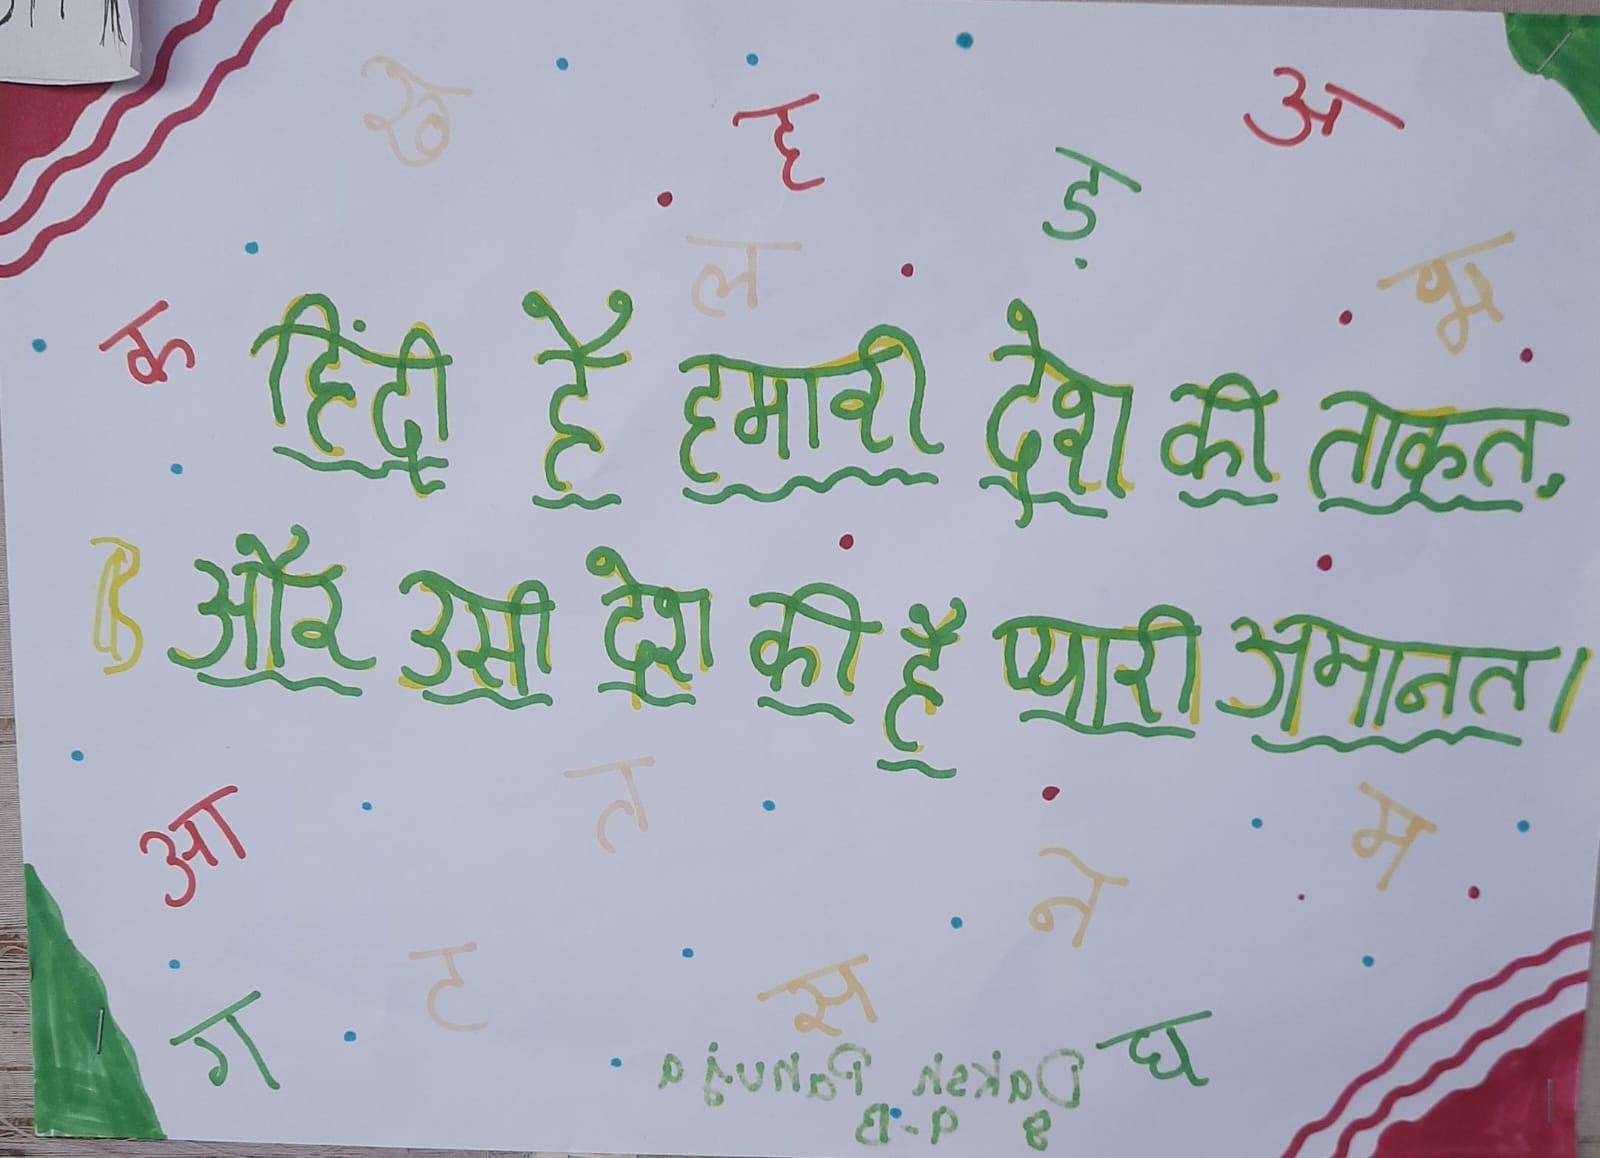 ख ह ड़ अ
ल भ
क
हिंदी है हमारी देश की ताकत,
और उसी देश की है प्यारी अमानत।
आ त म
ने
ट स
ग घ
Daksh Pahuja
8 9-B